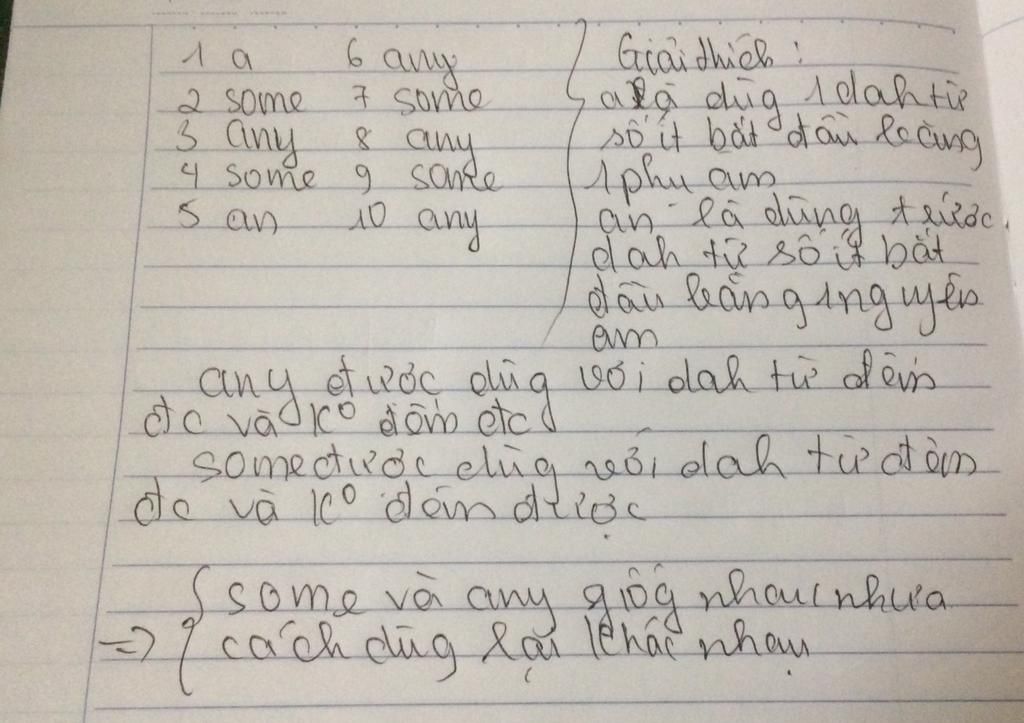 1 a 6 any
2 some 7 some
3 any 8 any
4 some 9 some
5 an 10 any
Giải thích :
a là dùg 1 dah từ
số ít bắt đầu bằng
1 phụ âm
an là dùng trước
dah từ số ít bắt
đầu bằng 1 nguyên
âm
any được dùg với dah từ đếm
đc và k° đếm đc
some được dùg với dah từ đếm
đc và k° đếm được
some và any giốg nhau nhưa
=> cách dùg lại khác nhau